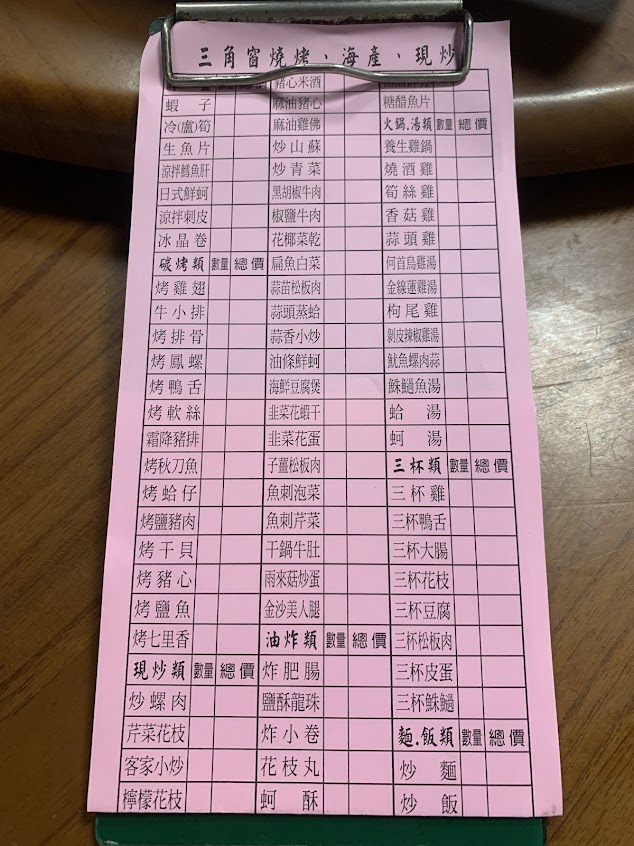 三角窗燒烤、海產、現炒
數量 總價
蝦子
冷(盧)筍
生魚片
涼拌鱈魚肝
日式鮮蚵
涼拌刺皮
冰晶卷
碳烤類 數量 總價
烤雞翅
牛小排
烤排骨
烤鳳螺
烤鴨舌
烤軟絲
霜降豬排
烤秋刀魚
烤蛤仔
烤鹽豬肉
烤干貝
烤豬心
烤鹽魚
烤七里香
現炒類 數量 總價
炒螺肉
芹菜花枝
客家小炒
檸檬花枝
豬心米酒
麻油豬心
麻油雞佛
炒山蘇
炒青菜
黑胡椒牛肉
椒鹽牛肉
花椰菜乾
扁魚白菜
蒜苗松板肉
蒜頭蒸蛤
蒜香小炒
油條鮮蚵
海鮮豆腐煲
韭菜花蝦干
韭菜花蛋
子薑松板肉
魚刺泡菜
魚刺芹菜
干鍋牛肚
雨來菇炒蛋
金沙美人腿
油炸類 數量 總價
炸肥腸
鹽酥龍珠
炸小卷
花枝丸
蚵酥
糖醋魚片
火鍋.湯類 數量 總價
養生雞鍋
燒酒雞
筍絲雞
香菇雞
蒜頭雞
何首烏雞湯
金線蓮雞湯
枸尾雞
剝皮辣椒雞湯
魷魚螺肉蒜
鮢鮐魚湯
蛤湯
蚵湯
三杯類 數量 總價
三杯雞
三杯鴨舌
三杯大腸
三杯花枝
三杯豆腐
三杯松板肉
三杯皮蛋
三杯鮢鮐
麵.飯類 數量 總價
炒麵
炒飯